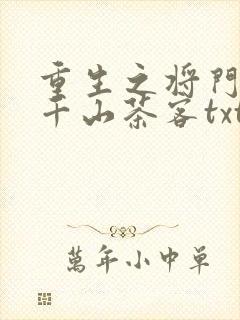 重生之将門
千山茶客txt
萬年小中单